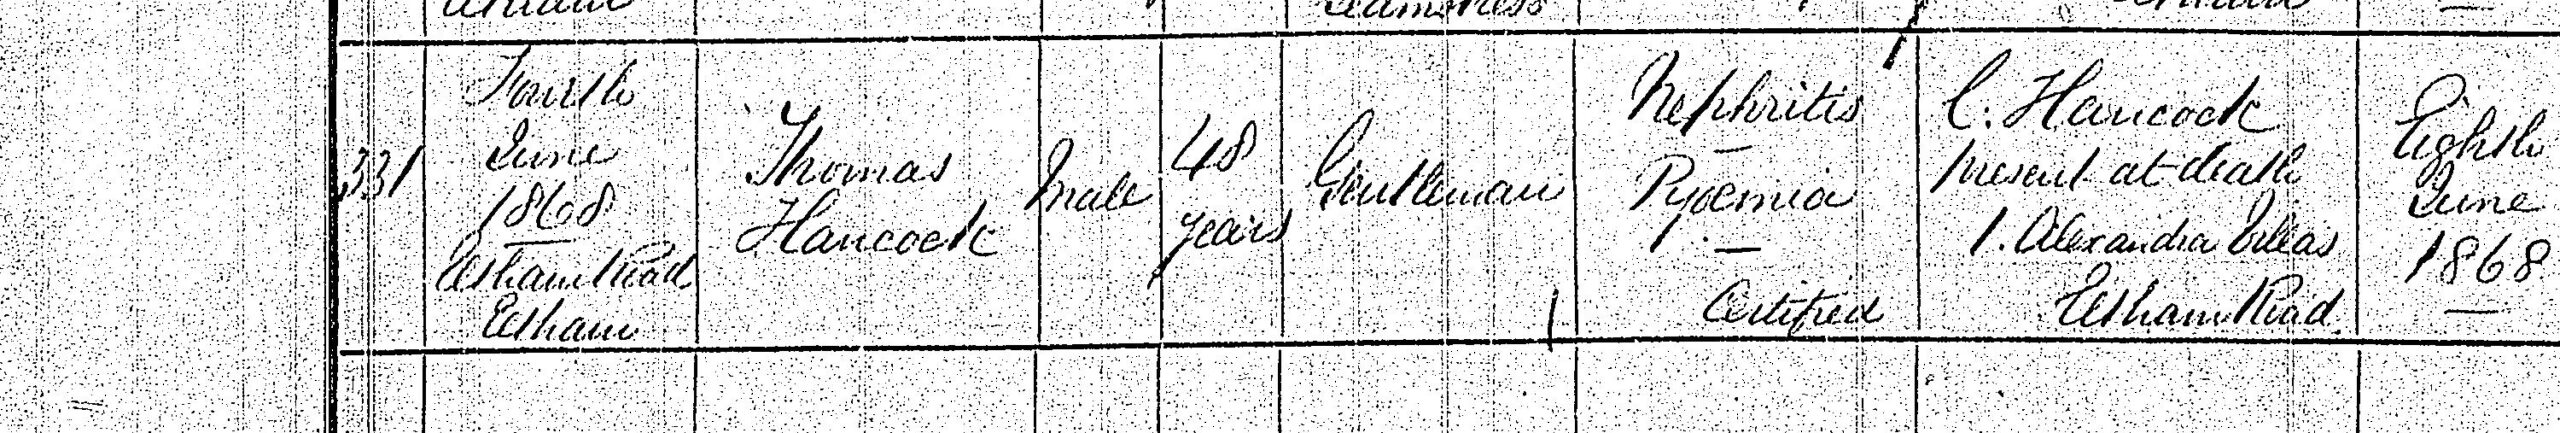 Seamstress
331
Fourth
June
1868
Eltham Road
Eltham
Thomas
Hancock
Male
48
years
Gentleman
Nephritis
Pyoemia
Certified
C. Hancock
Present at death
1. Alexandra Villas
Eltham Road.
Eighth
June
1868